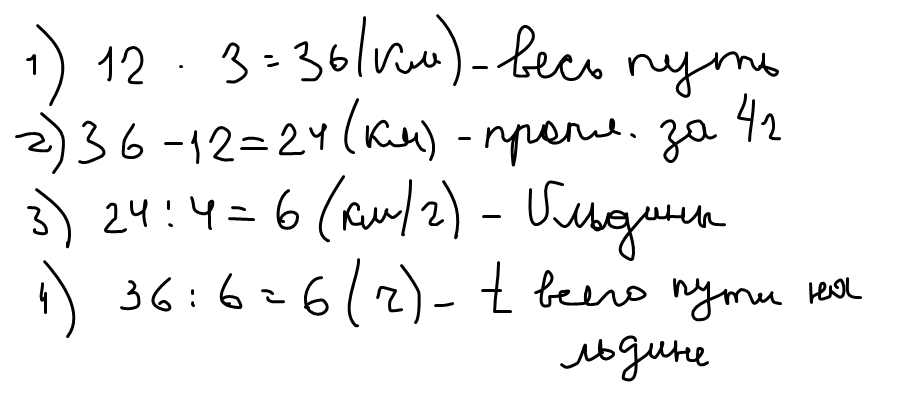 1) 12 · 3 = 36 (км) - весь путь
2) 36 - 12 = 24 (км) - пропл. за 4ч
3) 24 : 4 = 6 (км/ч) - V льдины
4) 36 : 6 = 6 (ч) - t всего пути на
льдине